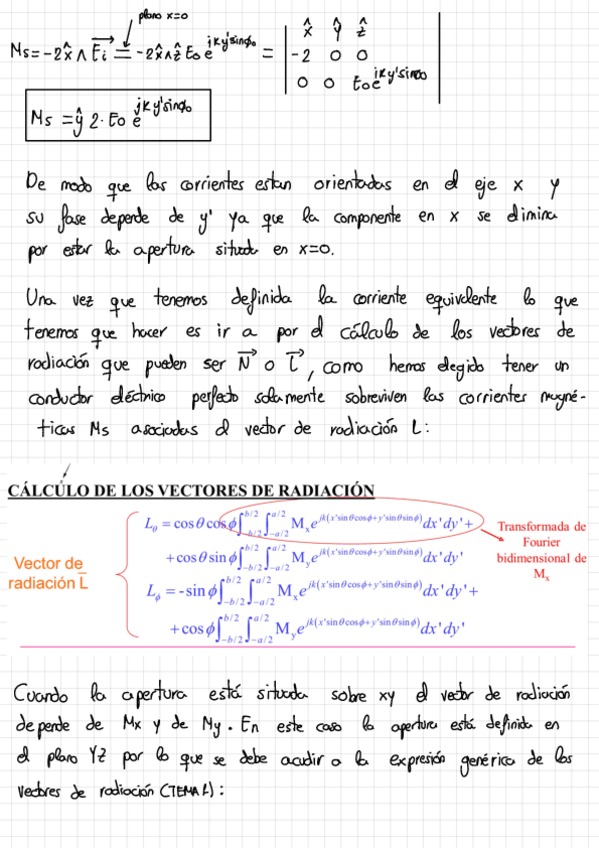 plano x=0
Ms = -2x̂ ∧ E⃗i = -2x̂∧ẑ E₀ e^{jky'sinϕ₀} = | x̂ ŷ ẑ |
| -2 0 0 |
| 0 0 E₀e^{jky'sinϕ₀} |
Ms = ŷ 2·E₀ e^{jky'sinϕ₀}
De modo que las corrientes estan orientadas en el eje x y
su fase depende de y' ya que la componente en x se elimina
por estar la apertura situada en x=0.
Una vez que tenemos definida la corriente equivalente lo que
tenemos que hacer es ir a por el cálculo de los vectores de
radiación que pueden ser N⃗ o L⃗, como hemos elegido tener un
conductor eléctrico perfecto solamente sobreviven las corrientes magné-
ticas Ms asociadas al vector de radiación L:
CÁLCULO DE LOS VECTORES DE RADIACIÓN
L_θ = cosθ cosϕ ∫_{-b/2}^{b/2} ∫_{-a/2}^{a/2} M_x e^{jk(x'sinθcosϕ+y'sinθsinϕ)} dx'dy'+
+cosθ sinϕ ∫_{-b/2}^{b/2} ∫_{-a/2}^{a/2} M_y e^{jk(x'sinθcosϕ+y'sinθsinϕ)} dx'dy'
L_ϕ = -sinϕ ∫_{-b/2}^{b/2} ∫_{-a/2}^{a/2} M_x e^{jk(x'sinθcosϕ+y'sinθsinϕ)} dx'dy'+
+cosϕ ∫_{-b/2}^{b/2} ∫_{-a/2}^{a/2} M_y e^{jk(x'sinθcosϕ+y'sinθsinϕ)} dx'dy'
Vector de
radiación L̅
Transformada de
Fourier
bidimensional de
M_x
Cuando la apertura está situada sobre xy el vector de radiación
depende de Mx y de My. En este caso la apertura está definida en
el plano YZ por lo que se debe acudir a la expresión genérica de los
vectores de radiación (TEMA 1):